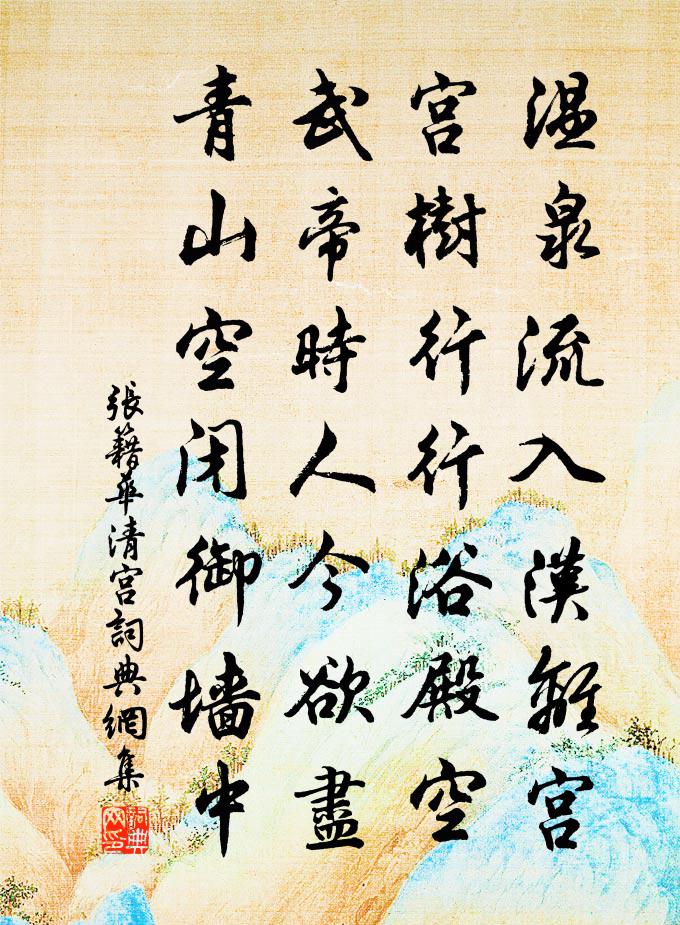 温泉流入漢離宮
宮樹行行浴殿空
武帝時人今欲盡
青山空闭御墙中
張籍華清宮詞典網集
詞典
网印